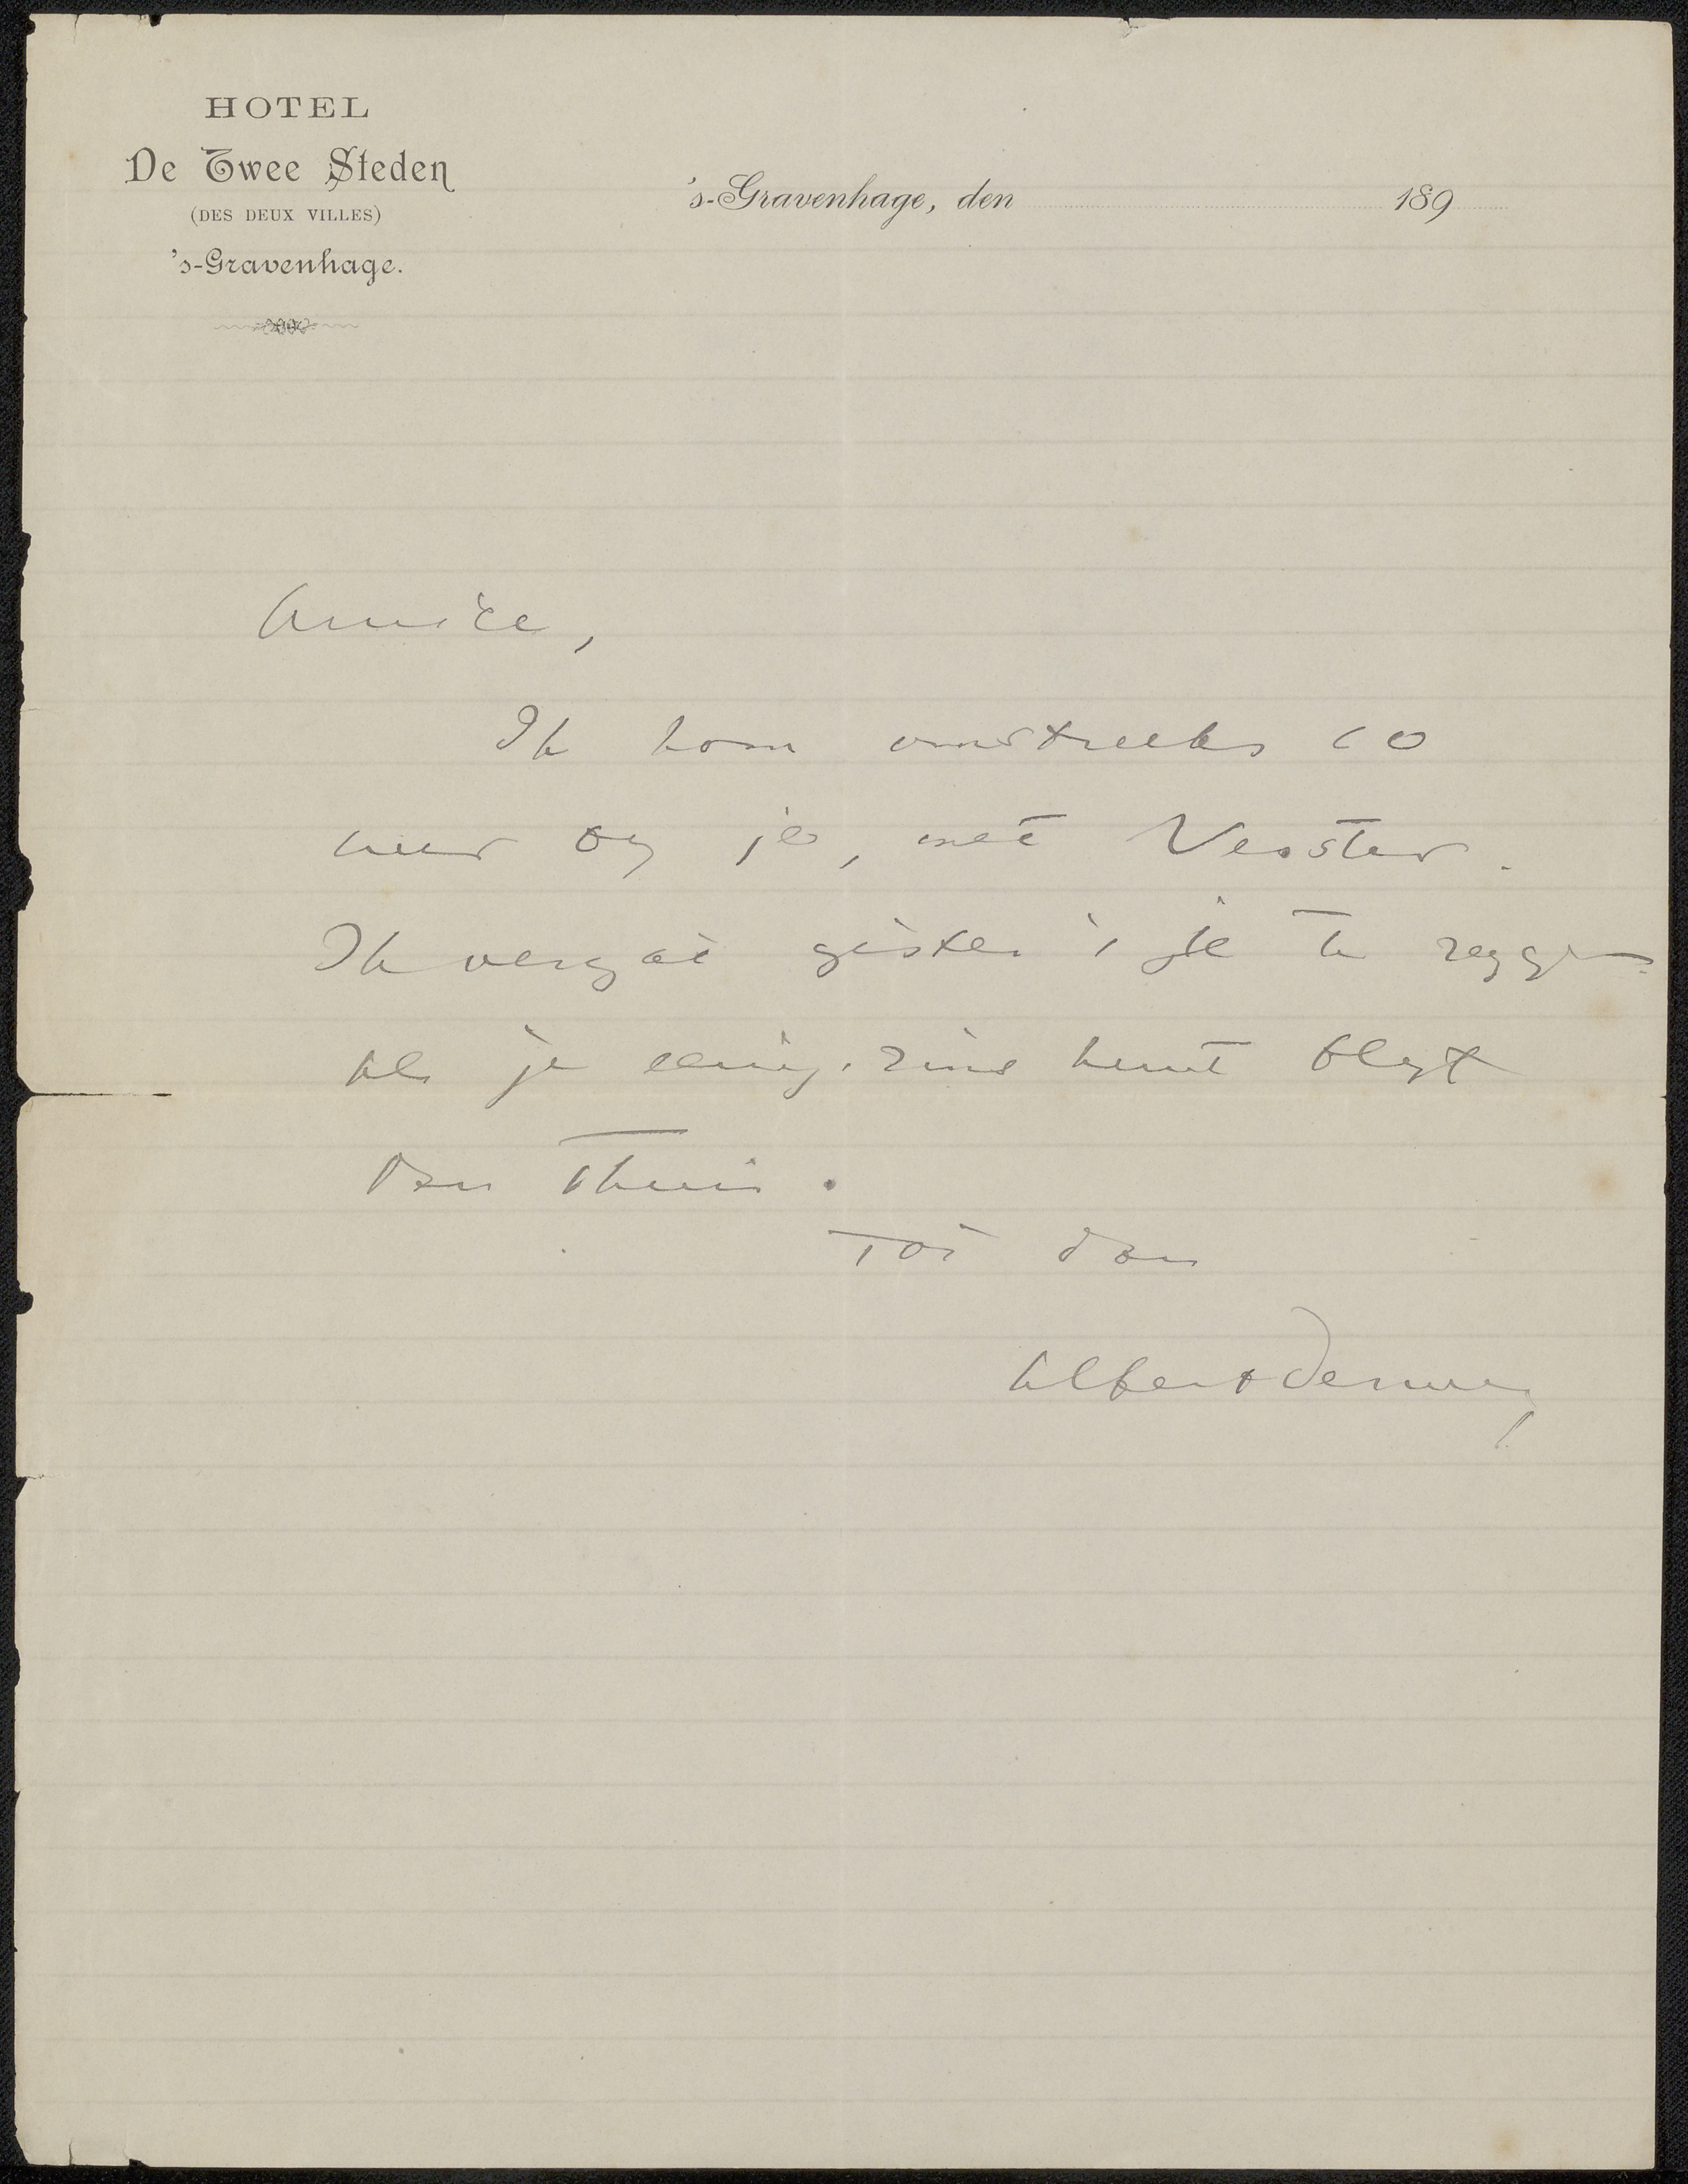 HOTEL
De Twee Steden
(DES DEUX VILLES)
's-Gravenhage.
's-Gravenhage, den 189
Amice,
Ik kom omstreeks 10
uur by je, met Verster.
Ik vergat gister 't je te zeggen.
Als je eenigzins kunt blyf
dan thuis.
Tot dan
Albert Verwey